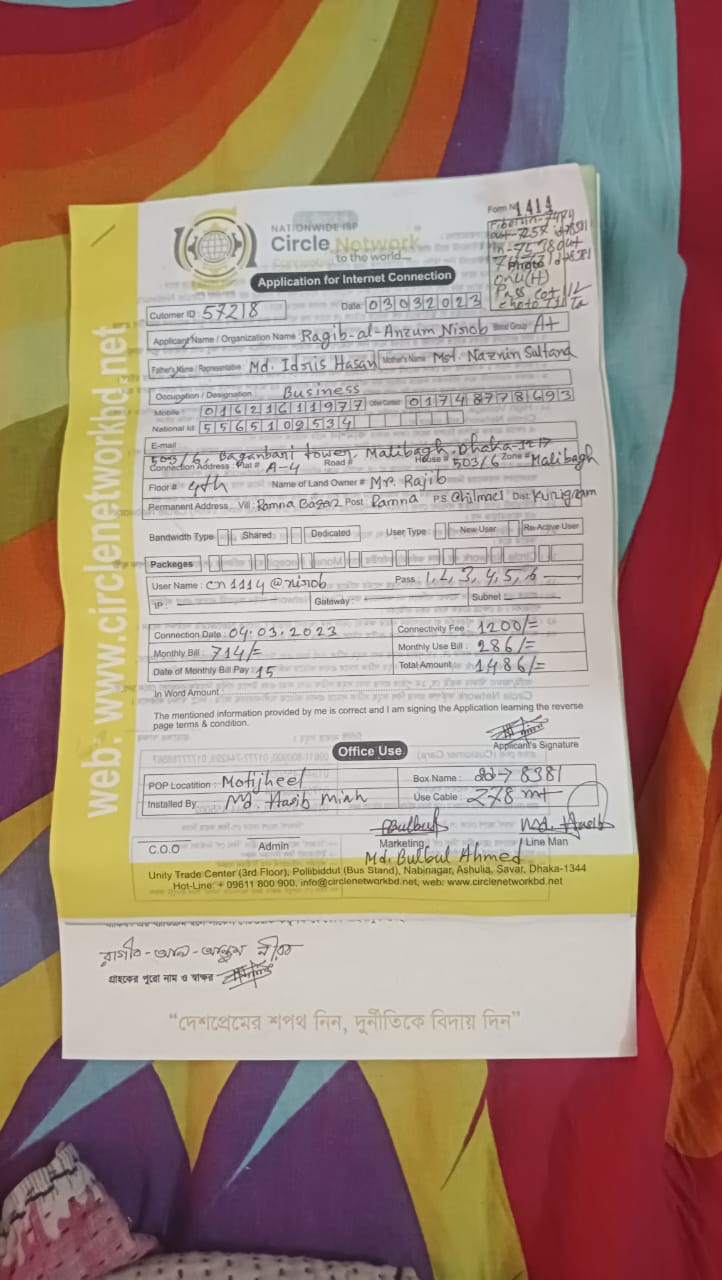 web. www.circlenetworkbd.net
NATIONWIDE ISP
Circle Network
to the world....
Form No 1414
Application for Internet Connection
Cutomer ID : 57218 Date: 03032023
Applicant Name / Organization Name : Ragib-al-Anzum Nisob Blood Group : A+
Father's Name / Representative Md. Idris Hasan Mother's Name : Mst. Naznin Saltana
Occupation / Designation : Business
Mobile : 01621611977 Other Contact : 01748778693
National Id: 5565109534
E-mail :
503/6, Baganbari tower, Malibagh, Dhaka-1217
Connection Address : Flat # A-4 Road # House # 503/6 Zone # Malibagh
Floor # 4th Name of Land Owner # Mr. Rajib
Permanent Address : Vill : Ramna Bazar Post : Ramna P.S Chilmari Dist: Kurigram
Bandwidth Type Shared Dedicated User Type New User Re-Active User
Packeges
User Name : cn1114@nisob Pass : 1, 2, 3, 4, 5, 6
IP : Gateway : Subnet
Connection Date : 04.03.2023 Connectivity Fee : 1200/=
Monthly Bill : 714/= Monthly Use Bill : 286/=
Date of Monthly Bill Pay : 15 Total Amount : 1486/=
In Word Amount :
The mentioned information provided by me is correct and I am signing the Application learning the reverse
page terms & condition.
Applicant's Signature
Office Use
POP Locatition : Motijheel Box Name : 8381
Installed By Md Hasib Miah Use Cable : 278 mt
Bulbul Md. Hasib
C.O.O Admin Marketing Line Man
Md. Bulbul Ahmed
Unity Trade Center (3rd Floor), Pollibiddut (Bus Stand), Nabinagar, Ashulia, Savar, Dhaka-1344
Hot-Line: + 09611 800 900, info@circlenetworkbd.net, web: www.circlenetworkbd.net
রাগীব-আল-আন্জুম নীরব
গ্রাহকের পুরো নাম ও স্বাক্ষর
“দেশপ্রেমের শপথ নিন, দুর্নীতিকে বিদায় দিন”